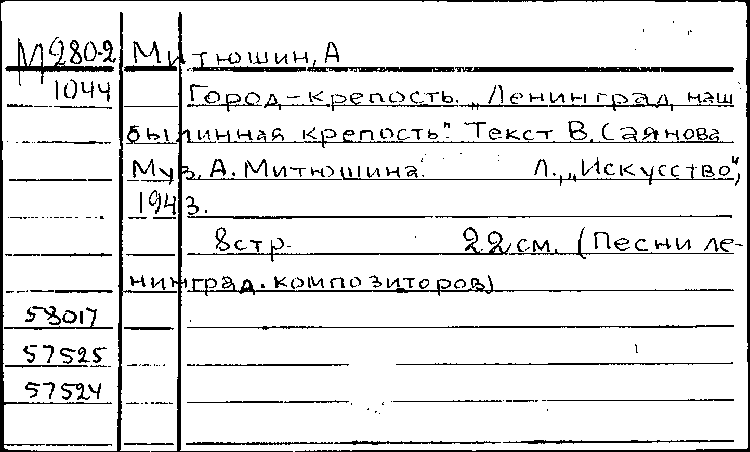 М280-2 Митюшин, А
1044 Город-крепость. „Ленинград наш
былинная крепость". Текст В. Саянова
Муз. А. Митюшина. Л., „Искусство",
1943.
8стр. 22 см. (Песни ле-
нинград. композиторов)
58017
57525
57524